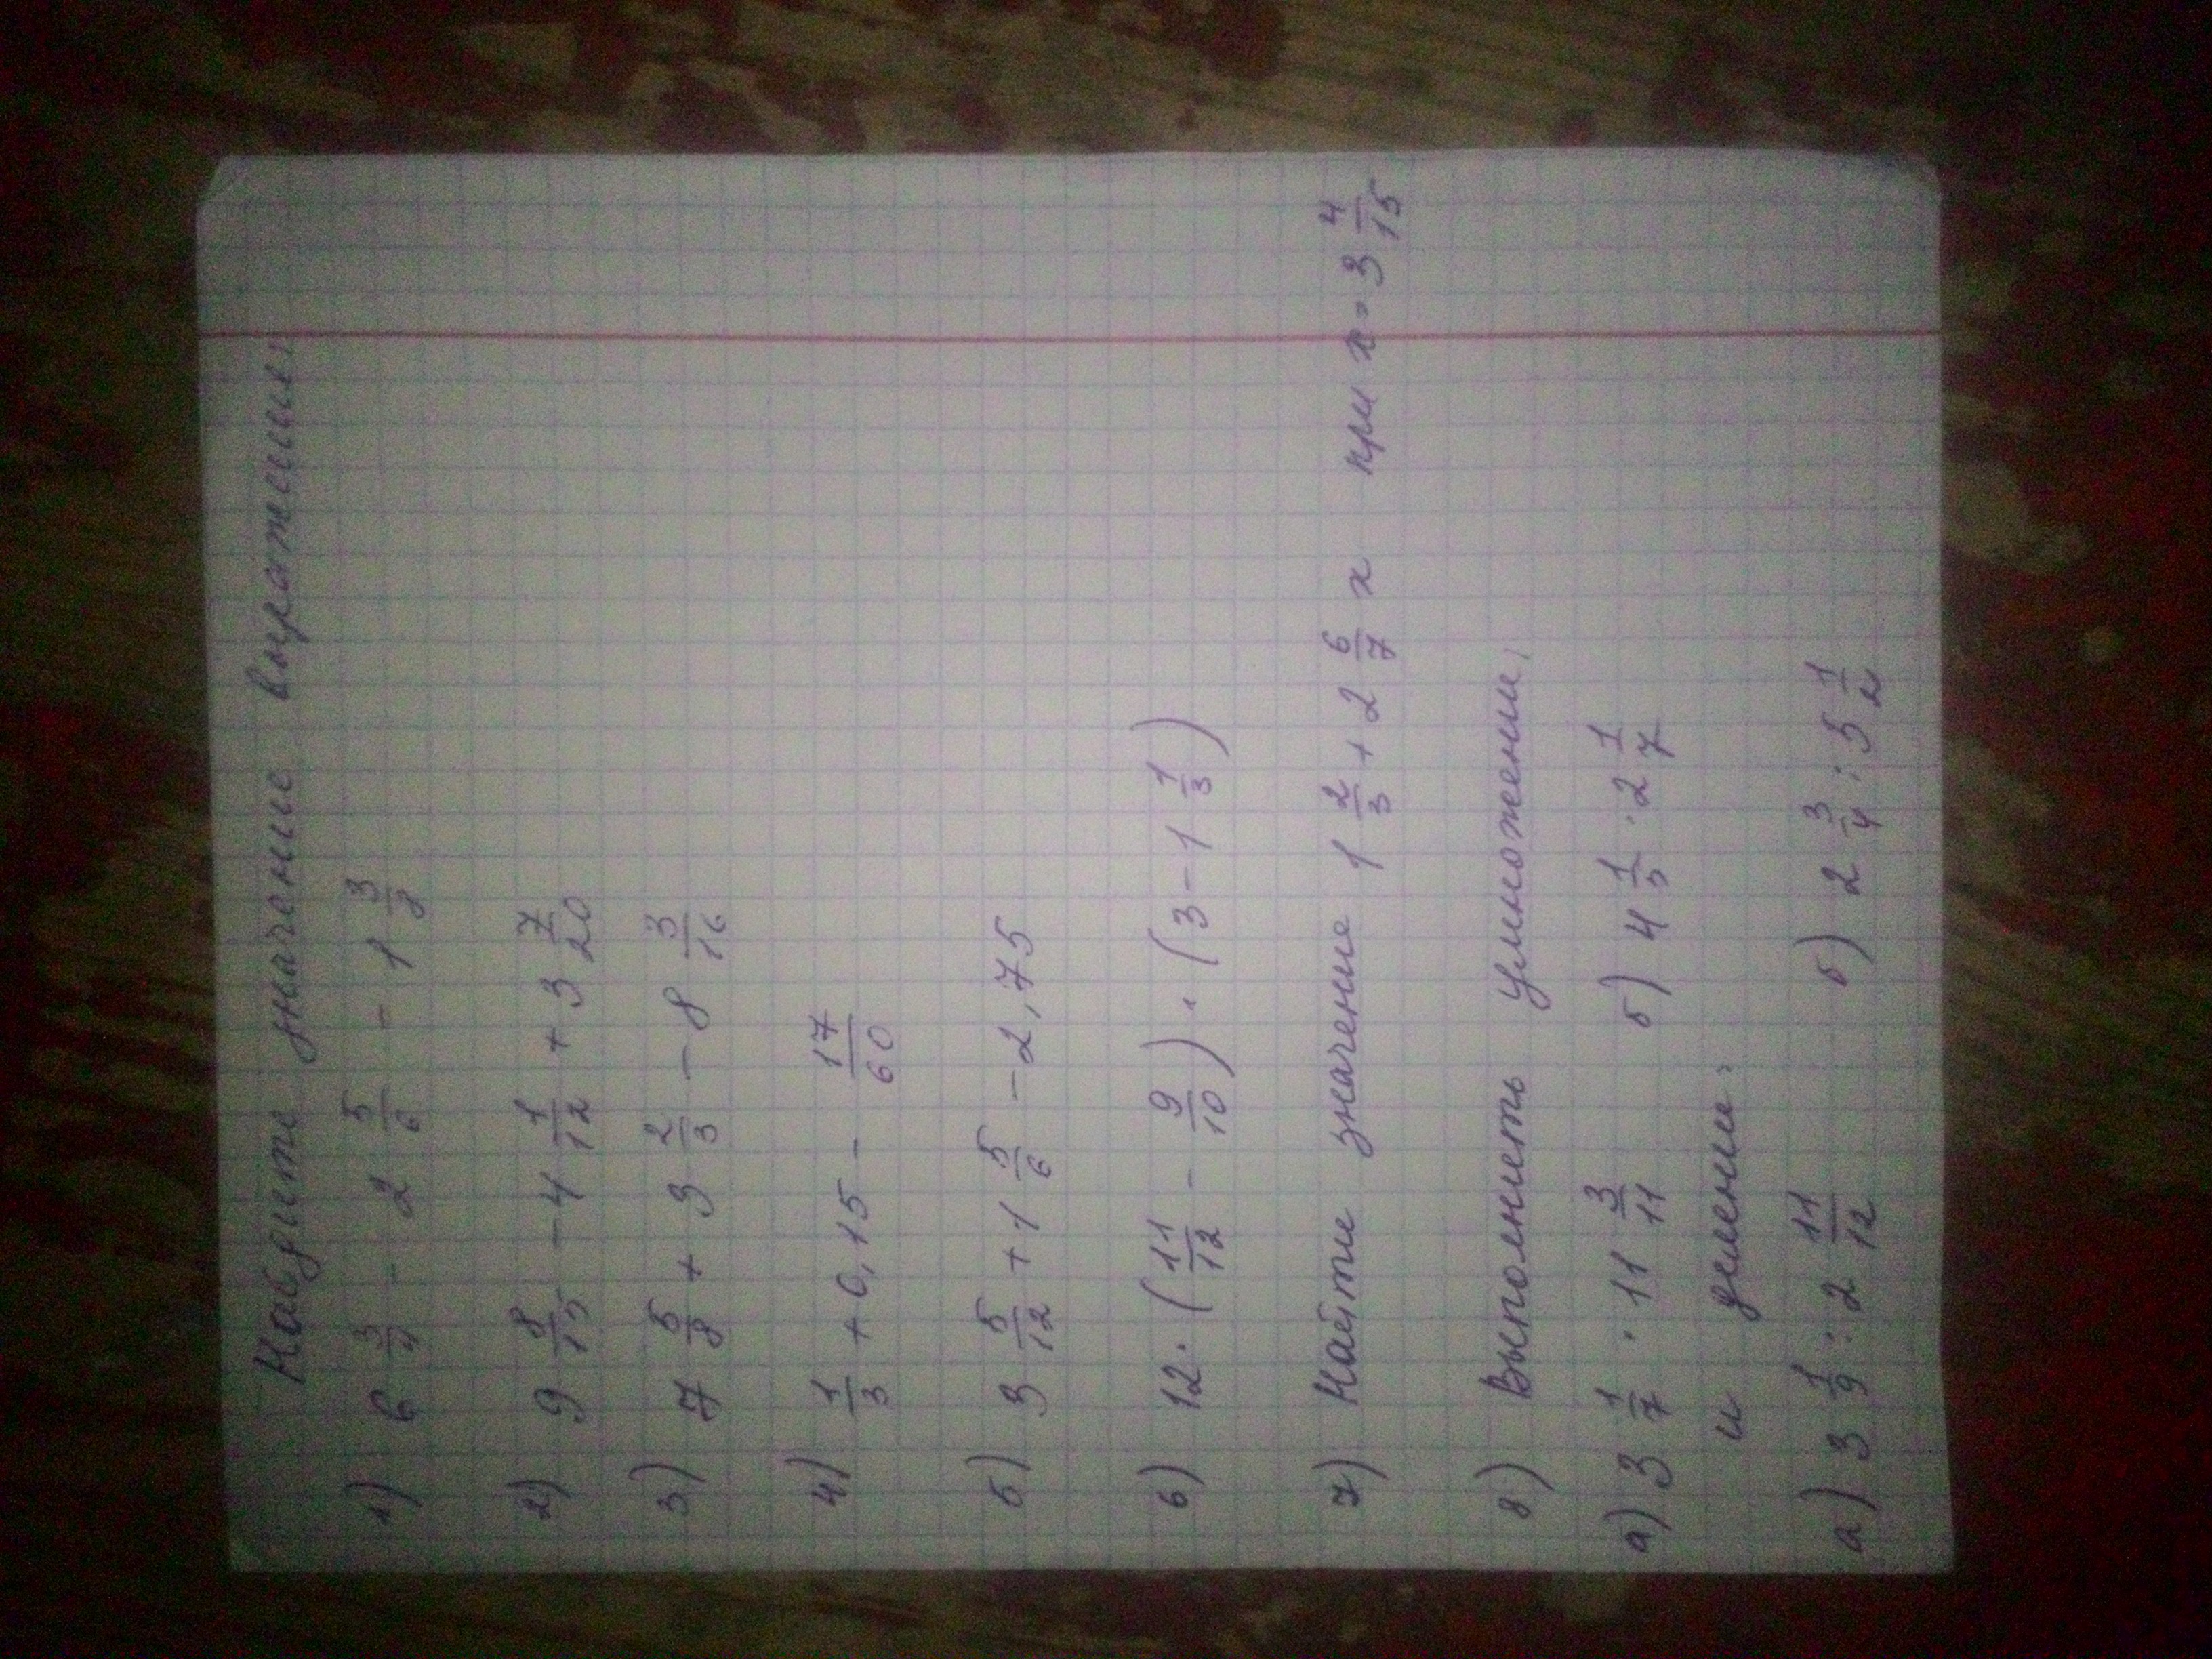 Найдите значение выражения:
1) 6 3/4 - 2 5/6 - 1 3/8
2) 9 8/15 - 4 1/12 + 3 7/20
3) 7 5/8 + 3 2/3 - 8 3/16
4) 1/3 + 0,15 - 17/60
5) 3 5/12 + 1 5/6 - 2,75
6) 12 · (11/12 - 9/10) · (3 - 1 1/3)
7) Найти значение 1 2/3 + 2 6/7 x при x = 3 4/15
8) Выполнить умножение:
а) 3 1/7 · 11 3/11 б) 4 1/5 · 2 1/7
и деление:
а) 3 1/9 : 2 11/12 б) 2 3/4 : 5 1/2